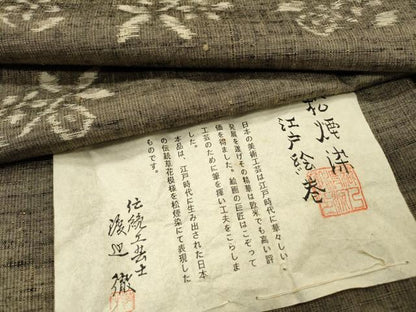 松煙染
江戸絵巻
日本の美術工芸は江戸時代に華々しい
発展を遂げその精華は欧米でも高い評
価を得ました。絵画の巨匠はこぞって
工芸のために筆を揮い工夫をこらしま
した。
本品は、江戸時代に生み出された日本
の伝統草花模様を松煙染にて表現した
ものです。
伝統工芸士
渡辺 徹